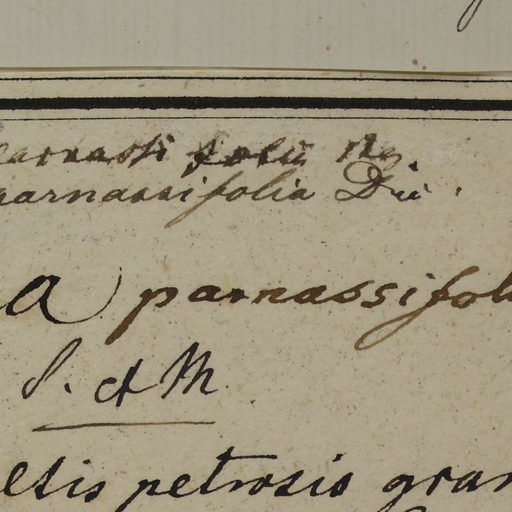 parnassifolia
parnassifolia Dii.
a parnassifol
S. et M
estis petrosis gran